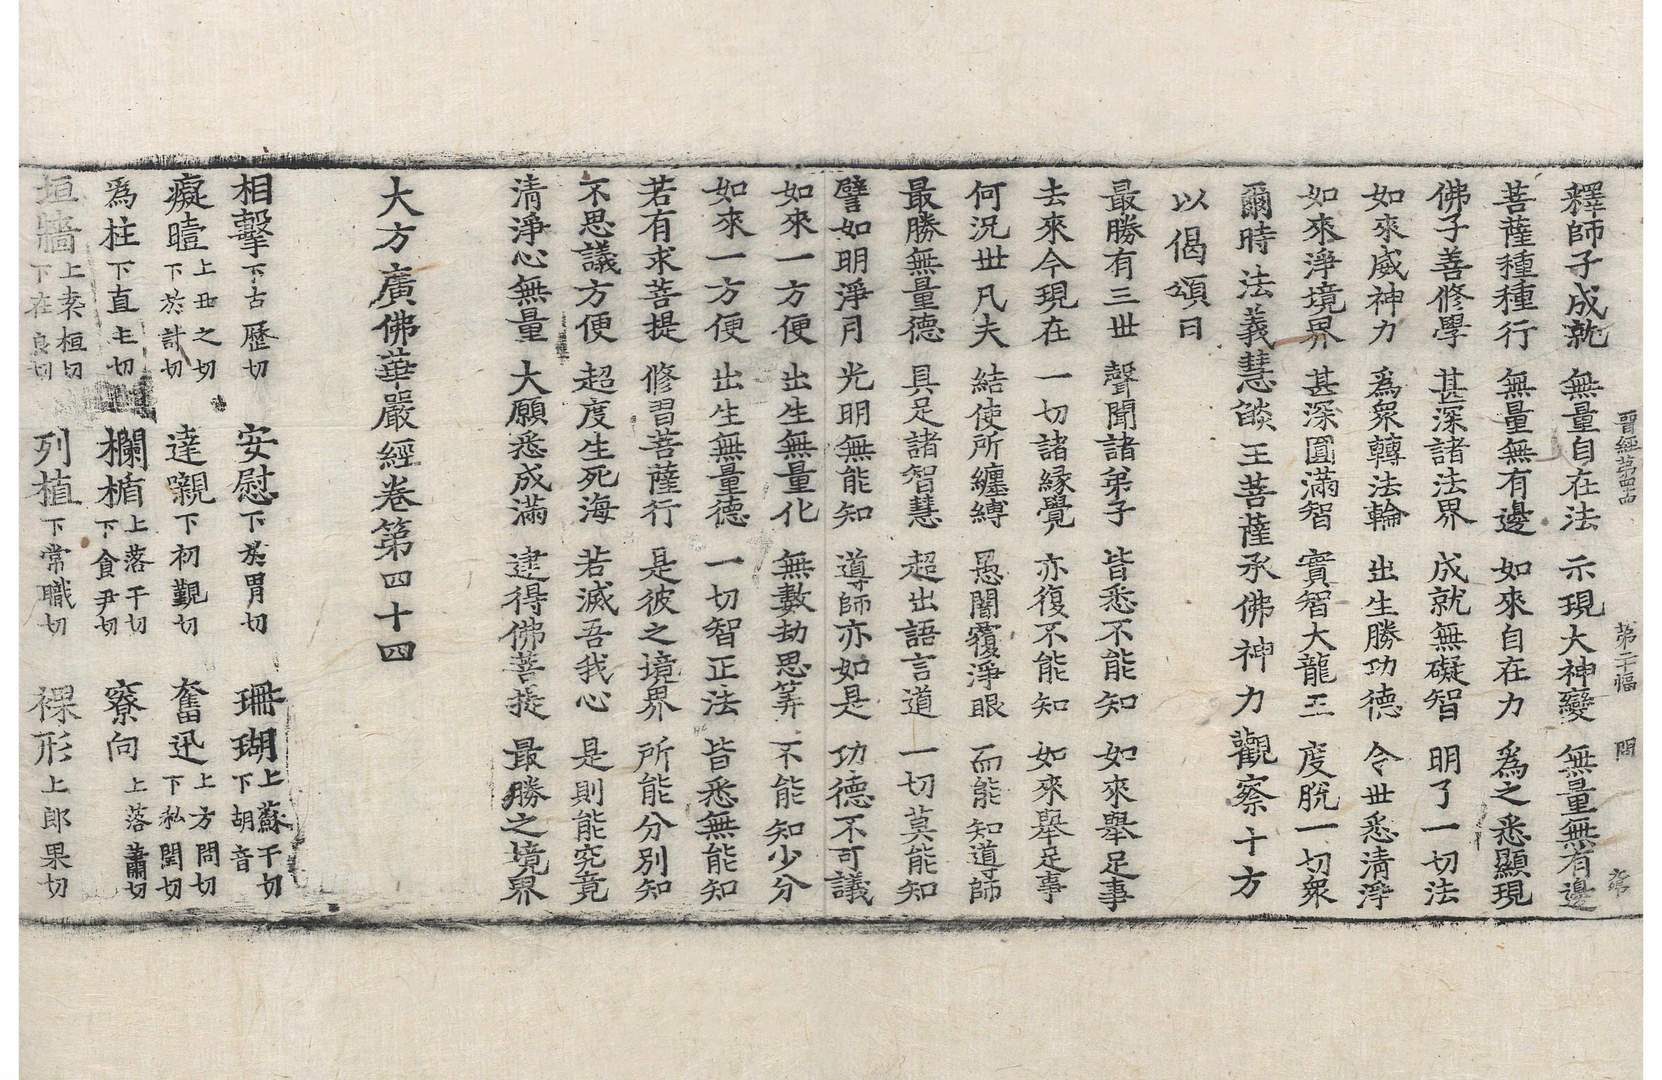 晉經第四十四
第二十幅
問
釋師子成就 無量自在法 示現大神變 無量無有邊
菩薩種種行 無量無有邊 如來自在力 爲之悉顯現
佛子善修學 甚深諸法界 成就無礙智 明了一切法
如來威神力 爲衆轉法輪 出生勝功德 令世悉清淨
如來淨境界 甚深圓滿智 實智大龍王 度脫一切衆
爾時法義慧燄王菩薩承佛神力觀察十方
以偈頌曰
最勝有三世 聲聞諸弟子 皆悉不能知 如來舉足事
去來今現在 一切諸緣覺 亦復不能知 如來舉足事
何況世凡夫 結使所纏縛 愚闇覆淨眼 而能知導師
最勝無量德 具足諸智慧 超出語言道 一切莫能知
譬如明淨月 光明無能知 導師亦如是 功德不可議
如來一方便 出生無量化 無數劫思筭 不能知少分
如來一方便 出生無量德 一切智正法 皆悉無能知
若有求菩提 修習菩薩行 是彼之境界 所能分別知
不思議方便 超度生死海 若滅吾我心 是則能究竟
清淨心無量 大願悉成滿 逮得佛菩提 最勝之境界
大方廣佛華嚴經卷第四十四
相擊下古歷切 安慰下於胃切 珊瑚上蘇干切下胡音
癡曀上丑之切下於計切 達嚫下初覲切 奮迅上方問切下私閏切
爲柱下直主切 欄楯上落干切下食尹切 寮向上落蕭切
垣牆上袁切下在良切 列植下常職切 裸形上郎果切